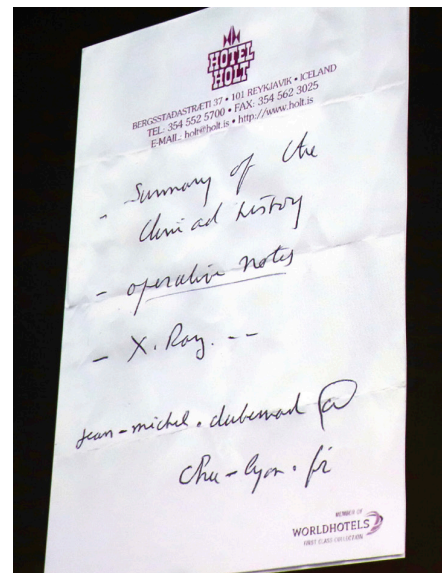 HOTEL
HOLT
BERGSSTADASTRÆTI 37 • 101 REYKJAVIK • ICELAND
TEL: 354 552 5700 • FAX: 354 562 3025
E-MAIL: holt@holt.is • http://www.holt.is
- Summary of the
Clinical history
- operative notes
- X.Ray. --
jean-michel.dubernard @
chu-lyon.fr
MEMBER OF
WORLDHOTELS
FIRST CLASS COLLECTION